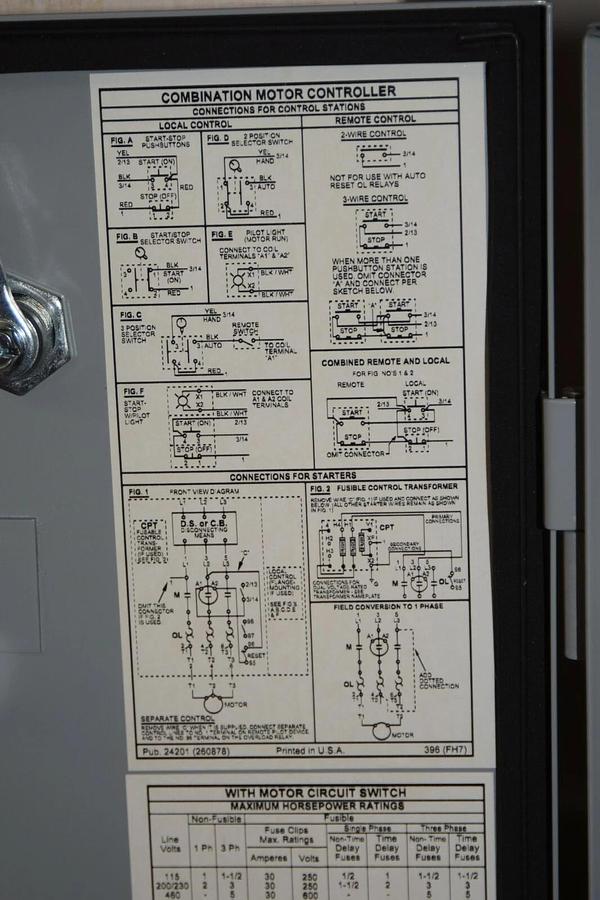 COMBINATION MOTOR CONTROLLER
CONNECTIONS FOR CONTROL STATIONS
LOCAL CONTROL
FIG. A START-STOP
PUSHBUTTONS
YEL
2/13 START (ON)
BLK
3/14
RED
STOP (OFF)
RED
1
FIG. D 2 POSITION
SELECTOR SWITCH
YEL 3/14
HAND
BLK
AUTO
RED 1
FIG. B START/STOP
SELECTOR SWITCH
BLK 3/14
START
(ON)
RED
1
FIG. E PILOT LIGHT
(MOTOR RUN)
CONNECT TO COIL
TERMINALS "A1" & "A2"
X1 BLK / WHT
X2
BLK / WHT
FIG. C
3 POSITION
SELECTOR
SWITCH
YEL 3/14
HAND
REMOTE
SWITCH
BLK
AUTO
TO COIL
TERMINAL
"A1"
RED 1
FIG. F
START-
STOP
W/PILOT
LIGHT
X1 BLK / WHT
X2
BLK / WHT
CONNECT TO
A1 & A2 COIL
TERMINALS
START (ON) 2/13
3/14
STOP (OFF)
1
REMOTE CONTROL
2-WIRE CONTROL
3/14
1
NOT FOR USE WITH AUTO
RESET OL RELAYS
3-WIRE CONTROL
START
3/14
2/13
STOP 1
WHEN MORE THAN ONE
PUSHBUTTON STATION IS
USED, OMIT CONNECTOR
"A" AND CONNECT PER
SKETCH BELOW.
START "A" START
3/14
2/13
STOP STOP 1
COMBINED REMOTE AND LOCAL
FOR FIG NO'S 1 & 2
REMOTE LOCAL
START (ON)
2/13 3/14
START
STOP (OFF)
STOP 1
OMIT CONNECTOR
CONNECTIONS FOR STARTERS
FIG. 1 FRONT VIEW DIAGRAM
L1 L2 L3
CPT
D.S. or C.B.
DISCONNECTING
MEANS
"C"
L1 L2 L3
A1 A2
2/13
M
3/14
OMIT THIS
CONNECTOR
IF FIG. 2
IS USED.
LOCAL
CONTROL
(FLANGE-
MOUNTING
IF USED)
96
97
OL
RESET
95
T1 T2 T3
T1 T2 T3
MOTOR
SEPARATE CONTROL
REMOVE WIRE "C" WHEN IT IS SUPPLIED. CONNECT SEPARATE
CONTROL LINES TO NO. 1 TERMINAL ON REMOTE PILOT DEVICE
AND TO THE NO. 96 TERMINAL ON THE OVERLOAD RELAY.
FIG. 2 FUSIBLE CONTROL TRANSFORMER
REMOVE WIRE "C" (FIG. 1) IF USED AND CONNECT AS SHOWN
BELOW. (ALL OTHER STARTER WIRES REMAIN AS SHOWN
IN FIG. 1)
PRIMARY
CONNECTIONS
CPT
SECONDARY
CONNECTIONS
L1 L2 L3
96
M OL
RESET
95
CONNECTIONS FOR
DUAL VOLTAGE RATED
TRANSFORMER - SEE
TRANSFORMER NAMEPLATE
FIELD CONVERSION TO 1 PHASE
L1 L2 L3
A1 A2
M
OL
ADD
DOTTED
CONNECTION
T1 T2
MOTOR
Pub. 24201 (260878) Printed in U.S.A. 396 (FH7)
WITH MOTOR CIRCUIT SWITCH
MAXIMUM HORSEPOWER RATINGS
Line
Volts
Non-Fusible
1 Ph 3 Ph
Fusible
Fuse Clips
Max. Ratings
Amperes Volts
Single Phase
Non-Time
Delay
Fuses
Time
Delay
Fuses
Three Phase
Non-Time
Delay
Fuses
Time
Delay
Fuses
115 1 1-1/2 30 250 1/2 1 1-1/2 1-1/2
200/230 2 3 30 250 1-1/2 2 3 3
460 - 5 30 600 - - 5 5